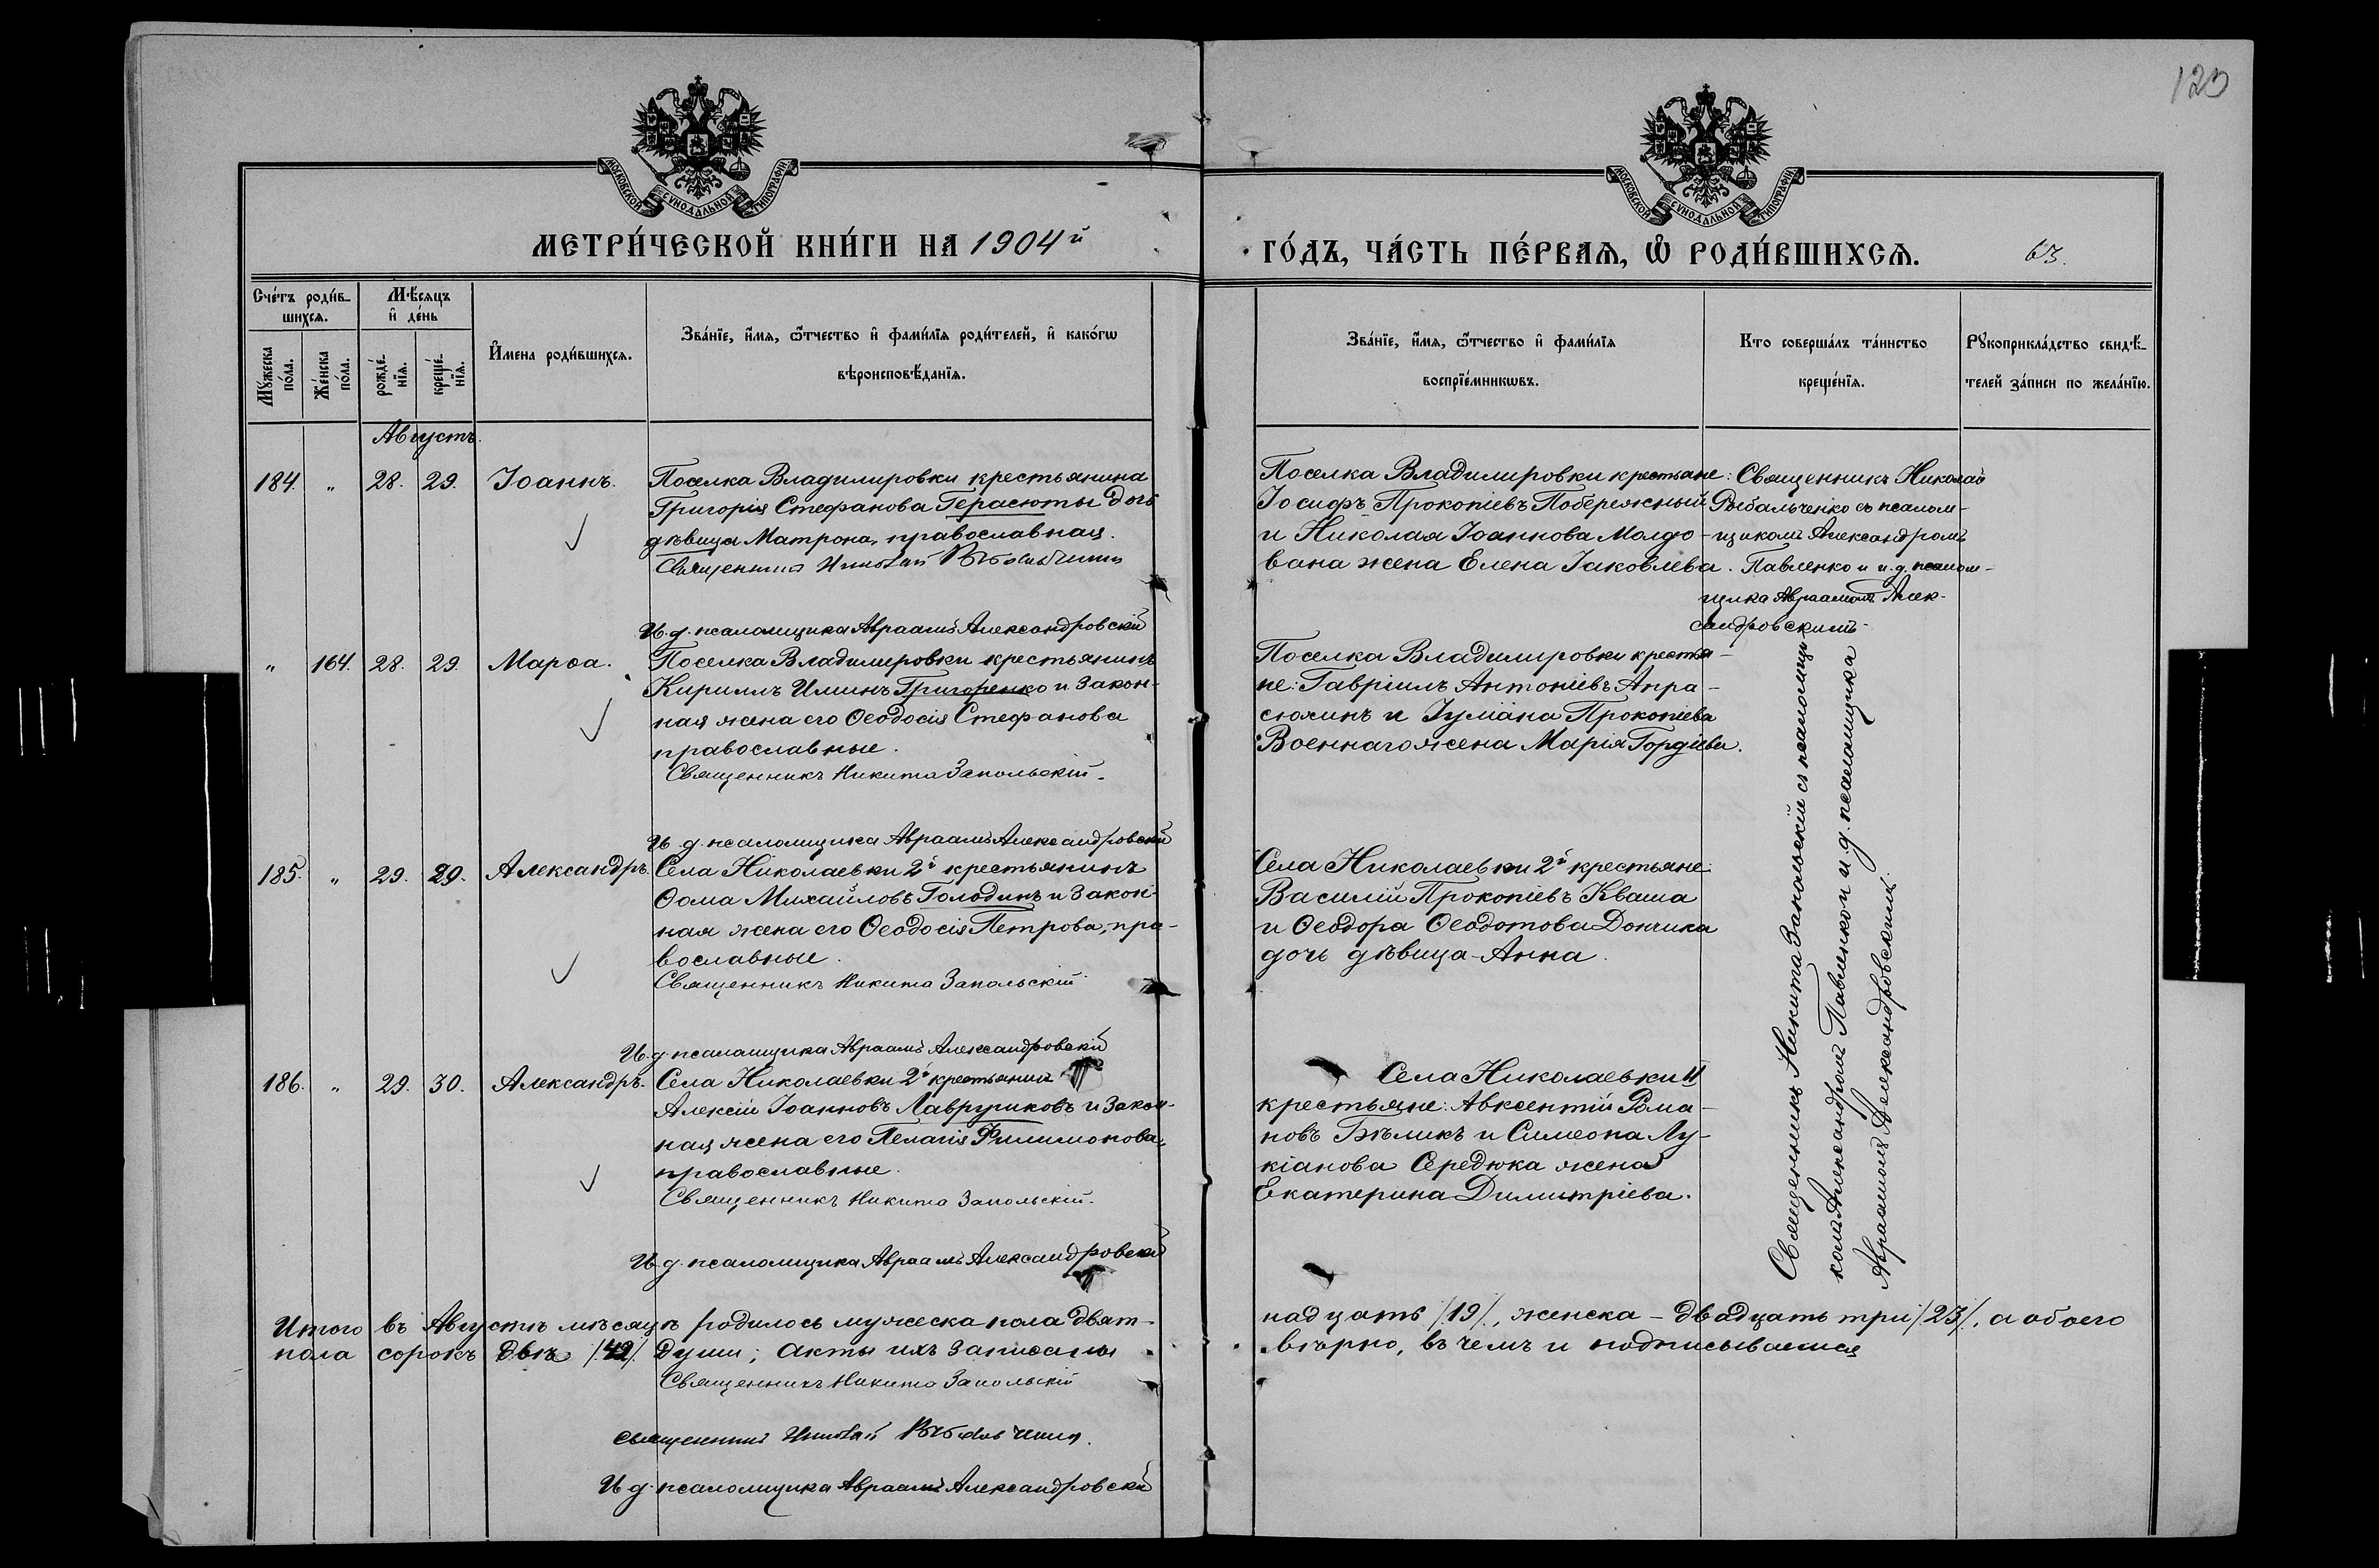 120
МОСКОВСКОЙ СѴНОДАЛЬНОЙ ТИПОГРАФІИ
МОСКОВСКОЙ СѴНОДАЛЬНОЙ ТИПОГРАФІИ
МЕТРИ́ЧЕСКОЙ КНИ́ГИ НА 1904й
ГО́ДЪ, ЧА́СТЬ ПЕ́РВАѦ, Ѡ҆ РОДИ́ВШИХСѦ.
63.
Сче́тъ роди́в-
шихсѧ.
Мѣ́сѧцъ
и҆ де́нь
Мꙋ́жеска по́ла.
Же́нска по́ла.
рожде́-
нїѧ.
креще́-
нїѧ.
И҆мена роди́вшихсѧ.
Зва́нїе, и҆́мѧ, ѻ҆́тчество и҆ фами́лїѧ роди́телей, и҆ како́гѡ
вѣроисповѣ́данїѧ.
Зва́нїе, и҆́мѧ, ѻ҆́тчество и҆ фами́лїѧ
воспрїе́мникѡвъ.
Кто соверша́лъ та́инство
креще́нїѧ.
Рꙋкоприкла́дство свидѣ́-
телей за́писи по жела́нїю.
Августъ.
184. " 28. 29. Іоаннъ.
Поселка Владимировки крестьянина
Григорія Стефанова Герасюты дочь
дѣвица Матрона, православная.
Священникъ Николай Рыбальченко
И. д. псаломщика Авраамъ Александровскій
Поселка Владимировки крестьяне:
Іосифъ Прокопіевъ Побережный
и Николая Іоаннова Молдо-
вана жена Елена Іаковлева.
Священникъ Николай
Рыбальченко съ псалом-
щикомъ Александромъ
Павленко и и. д. псалом-
щика Авраамомъ Алек-
сандровскимъ.
" 164. 28. 29. Марѳа.
Поселка Владимировки крестьянинъ
Кириллъ Иминъ Григоренко и закон-
ная жена его Ѳеодосія Стефанова
православные.
Священникъ Никита Запольскій.
И. д. псаломщика Авраамъ Александровскій
Поселка Владимировки крестья-
не: Гавріилъ Антоніевъ Апра-
сюхинъ и Іуліана Прокопіева
Военнаго жена Марія Гордіева.
Священникъ Никита Запольскій съ псаломщи-
комъ Александромъ Павленко и и. д. псаломщика
Авраамомъ Александровскимъ.
185. " 29. 29. Александръ.
Села Николаевки 2й крестьянинъ
Ѳома Михайловъ Голодинъ и закон-
ная жена его Ѳеодосія Петрова, пра-
вославные.
Священникъ Никита Запольскій
И. д. псаломщика Авраамъ Александровскій
Села Николаевки 2й крестьяне:
Василій Прокопіевъ Кваша
и Ѳеодора Ѳеодотова Дончика
дочь дѣвица Анна.
186. " 29. 30. Александръ.
Села Николаевки 2й крестьянинъ
Алексій Іоанновъ Лавруриковъ и закон-
ная жена его Пелагія Филимонова,
православные.
Священникъ Никита Запольскій.
И. д. псаломщика Авраамъ Александровскій
Села Николаевки II
крестьяне: Авксентій Рома-
новъ Бѣликъ и Симеона Лу-
кіанова Середюка жена
Екатерина Димитріева.
Итого въ Августѣ мѣсяцѣ родилось мужеска пола девят-
надцать /19/, женска - двадцать три /23/, а обоего
пола сорокъ двѣ /42/. души; акты ихъ записаны
вѣрно, въ чемъ и подписываемся
Священникъ Никита Запольскій
священникъ Николай Рыбальченко.
И. д. псаломщика Авраамъ Александровскій